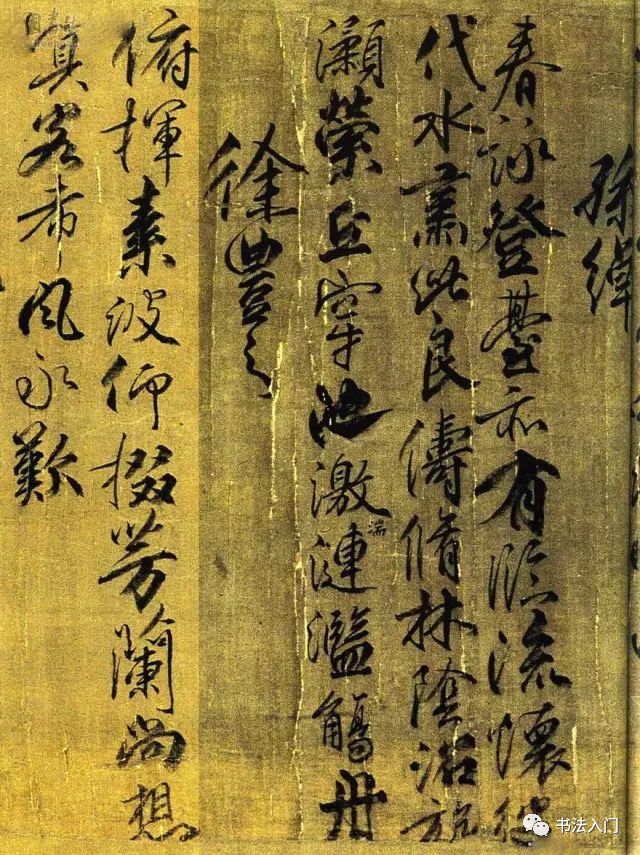 孫綽
春詠登臺亦有臨流懷彼
代水肅此良儔脩林陰沼旋
瀨縈丘穿池激湍漣濫觴舟
徐豐之
俯揮素波仰掇芳蘭尚想
嘉客希風永歎
书法入门